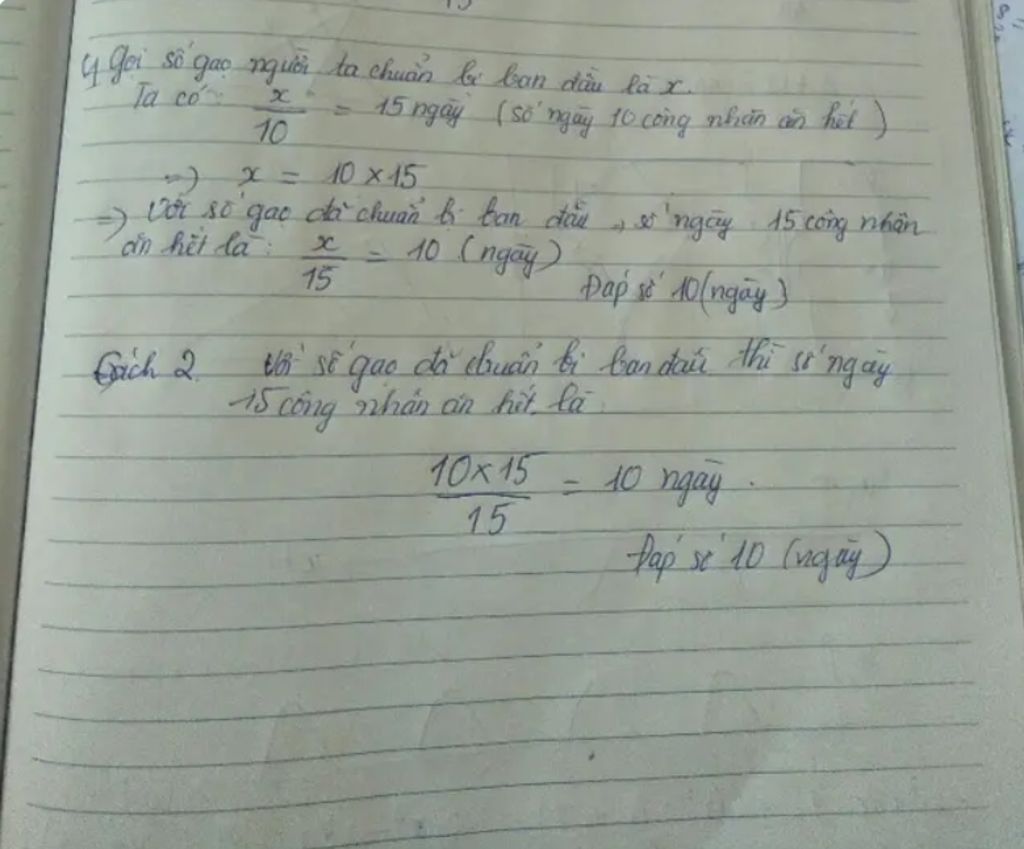 4, Gọi số gạo người ta chuẩn bị ban đầu là x.
Ta có: x/10 = 15 ngày (số ngày 10 công nhân ăn hết)
=> x = 10 × 15
=> Với số gạo đã chuẩn bị ban đầu, số ngày 15 công nhân
ăn hết là: x/15 = 10 (ngày)
Đáp số 10 (ngày)
Cách 2. Với số gạo đã chuẩn bị ban đầu thì số ngày
15 công nhân ăn hết là
10×15/15 = 10 ngày.
Đáp số 10 (ngày)